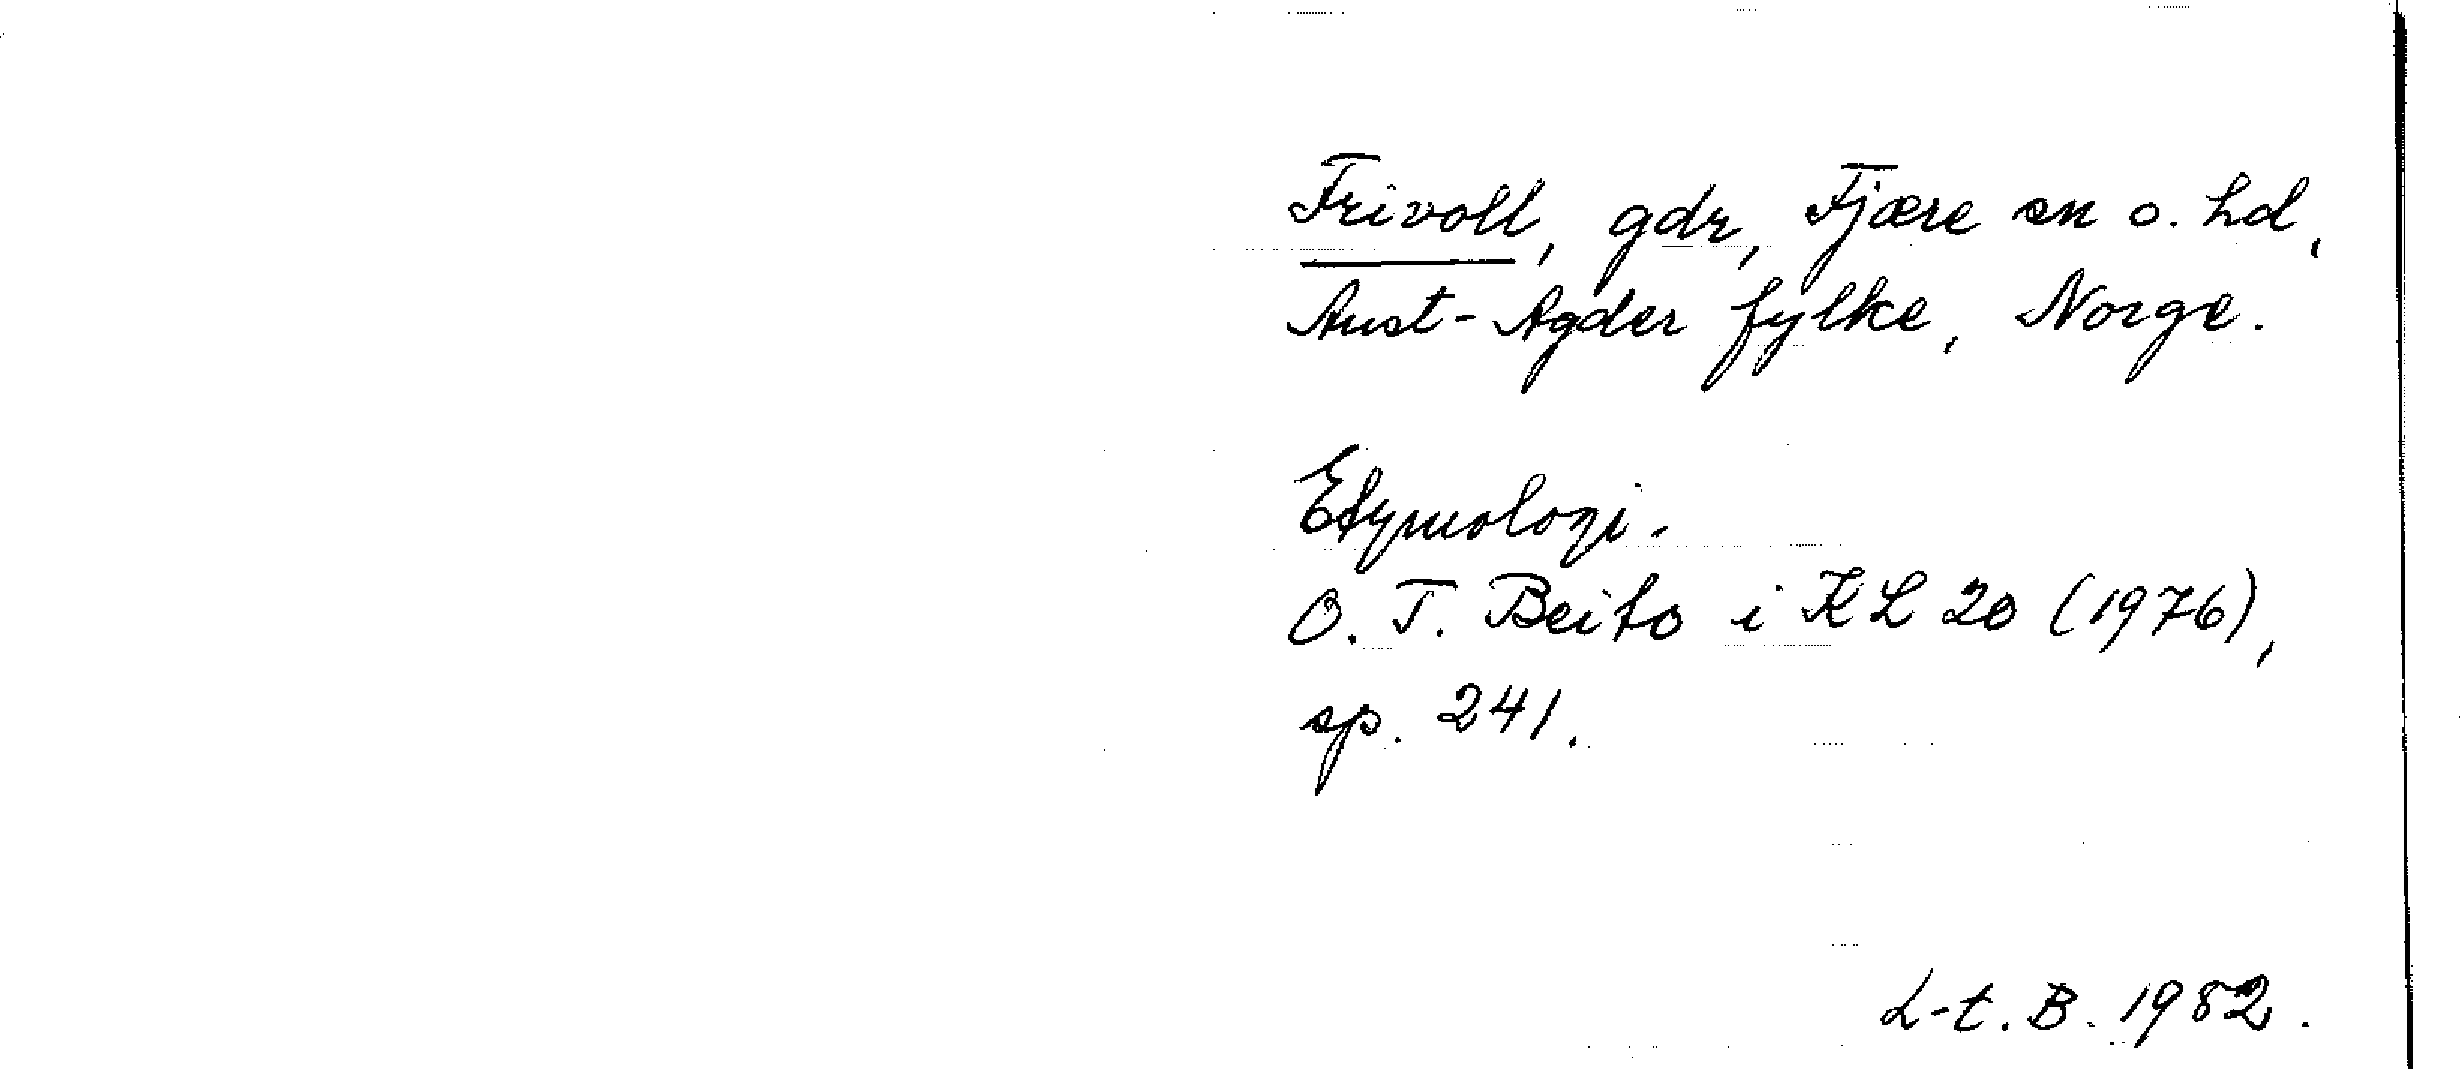 Frivoll, gdr, Fjære sn o. hd,
Aust-Agder fylke, Norge.
Etymologi.
O. T. Beito i KL 20 (1976),
sp. 241.
L-t. B. 1982.